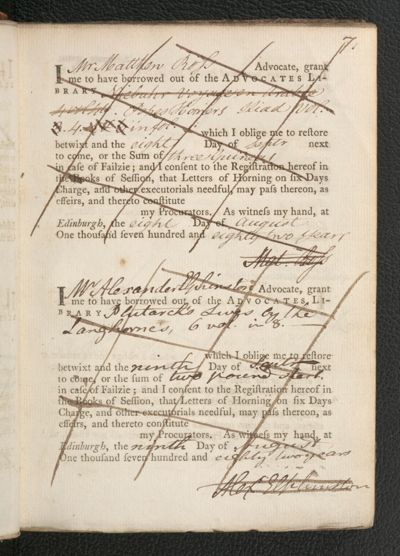 7.
I Mr Matthew Ross Advocate, grant
me to have borrowed out of the ADVOCATES LI-
BRARY,
Popes Homers Iliad vol.
3. 4. in fol. which I oblige me to restore
betwixt and the eight Day of Septr next
to come, or the Sum of three Guineas
in case of Failzie; and I consent to the Registration hereof in
the Books of Session, that Letters of Horning on six Days
Charge, and other executorials needful, may pass thereon, as
effeirs, and thereto constitute
my Procurators. As witness my hand, at
Edinburgh, the eight Day of August
One thousand seven hundred and eighty two years
Mat. Ross
I Mr Alexander Elphinston Advocate, grant
me to have borrowed out of the ADVOCATES LI-
BRARY Plutarch's Lives by the
Langhornes, 6 vol. in 8.
which I oblige me to restore
betwixt and the ninth Day of Septr next
to come, or the sum of two pound sterl.
in case of Failzie; and I consent to the Registration hereof in
the Books of Session, that Letters of Horning on six Days
Charge, and other executorials needful, may pass thereon, as
effeirs, and thereto constitute
my Procurators. As witness my hand, at
Edinburgh, the ninth Day of August
One thousand seven hundred and eighty two years
Alex. Elphinston